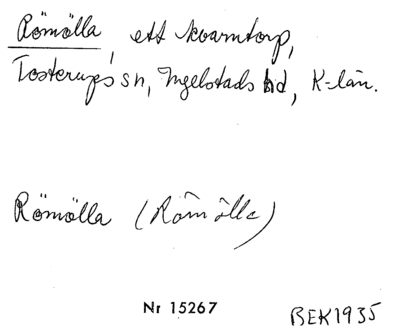 Römölla, ett kvarntorp,
Tosterups sn, Ingelstads hd, K-län.
Römölla (Römölla)
Nr 15267
BEK1935